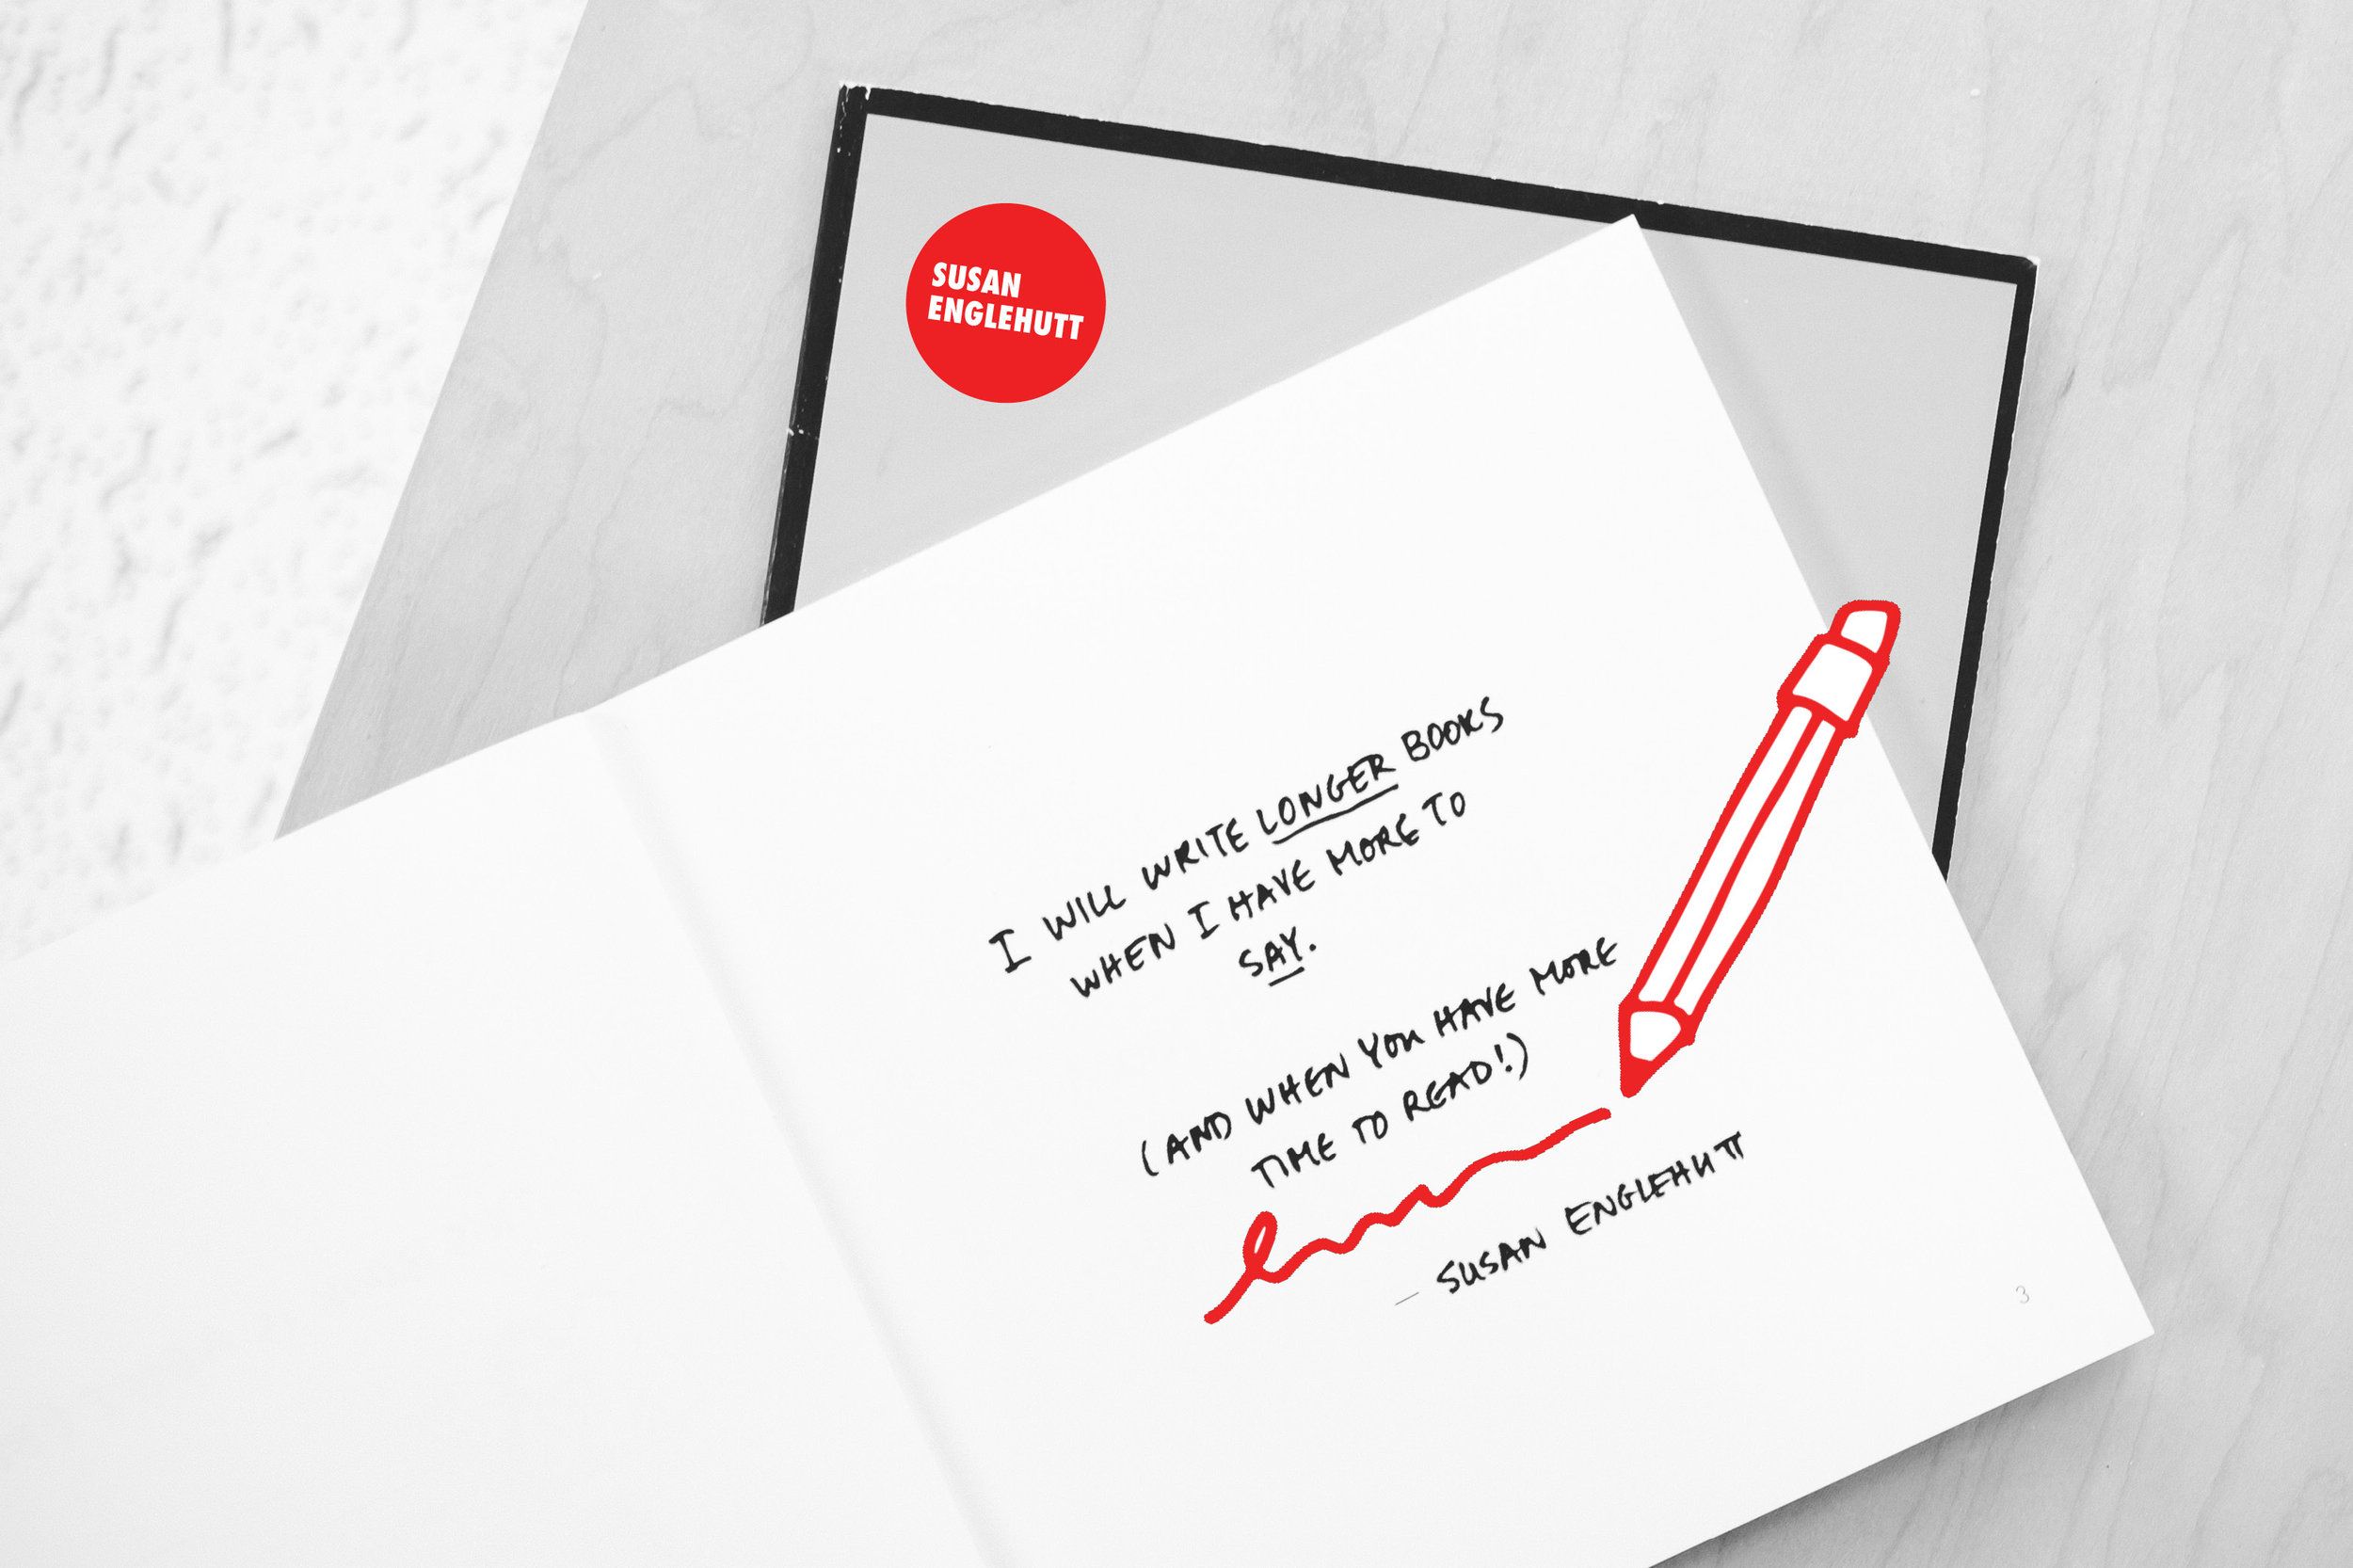 SUSAN
ENGLEHUTT
I WILL WRITE LONGER BOOKS
WHEN I HAVE MORE TO
SAY.
(AND WHEN YOU HAVE MORE
TIME TO READ!)
— SUSAN ENGLEHUTT
3